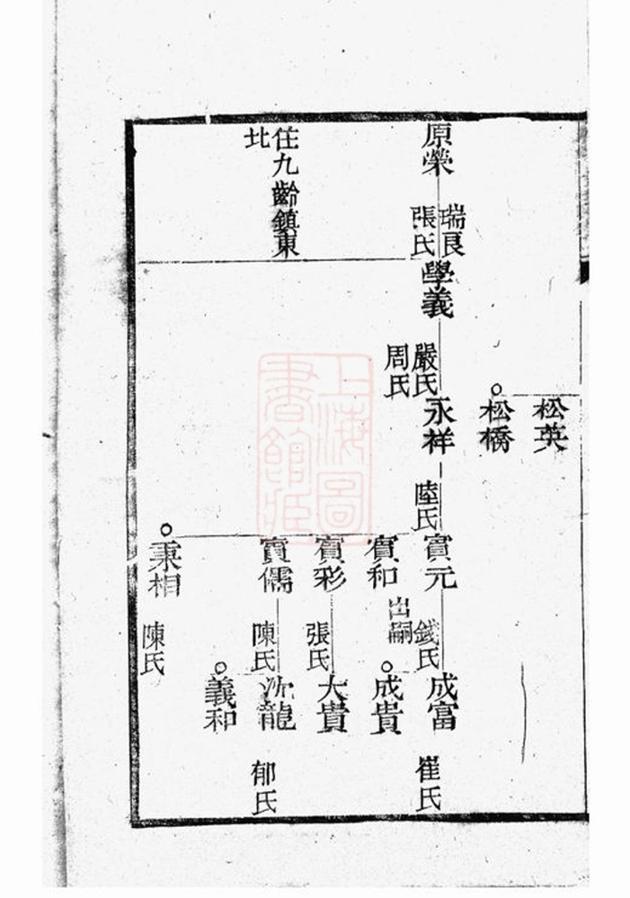 松英
松橋
原榮
瑞良
張氏
學義
嚴氏
周氏
永祥
陸氏
寶元
錢氏
成富
崔氏
寶和
出嗣
成貴
寶彩
張氏
大貴
寶儒
陳氏
龍
郁氏
義和
秉相
陳氏
住九齡鎮東
北
上海圖
書館藏